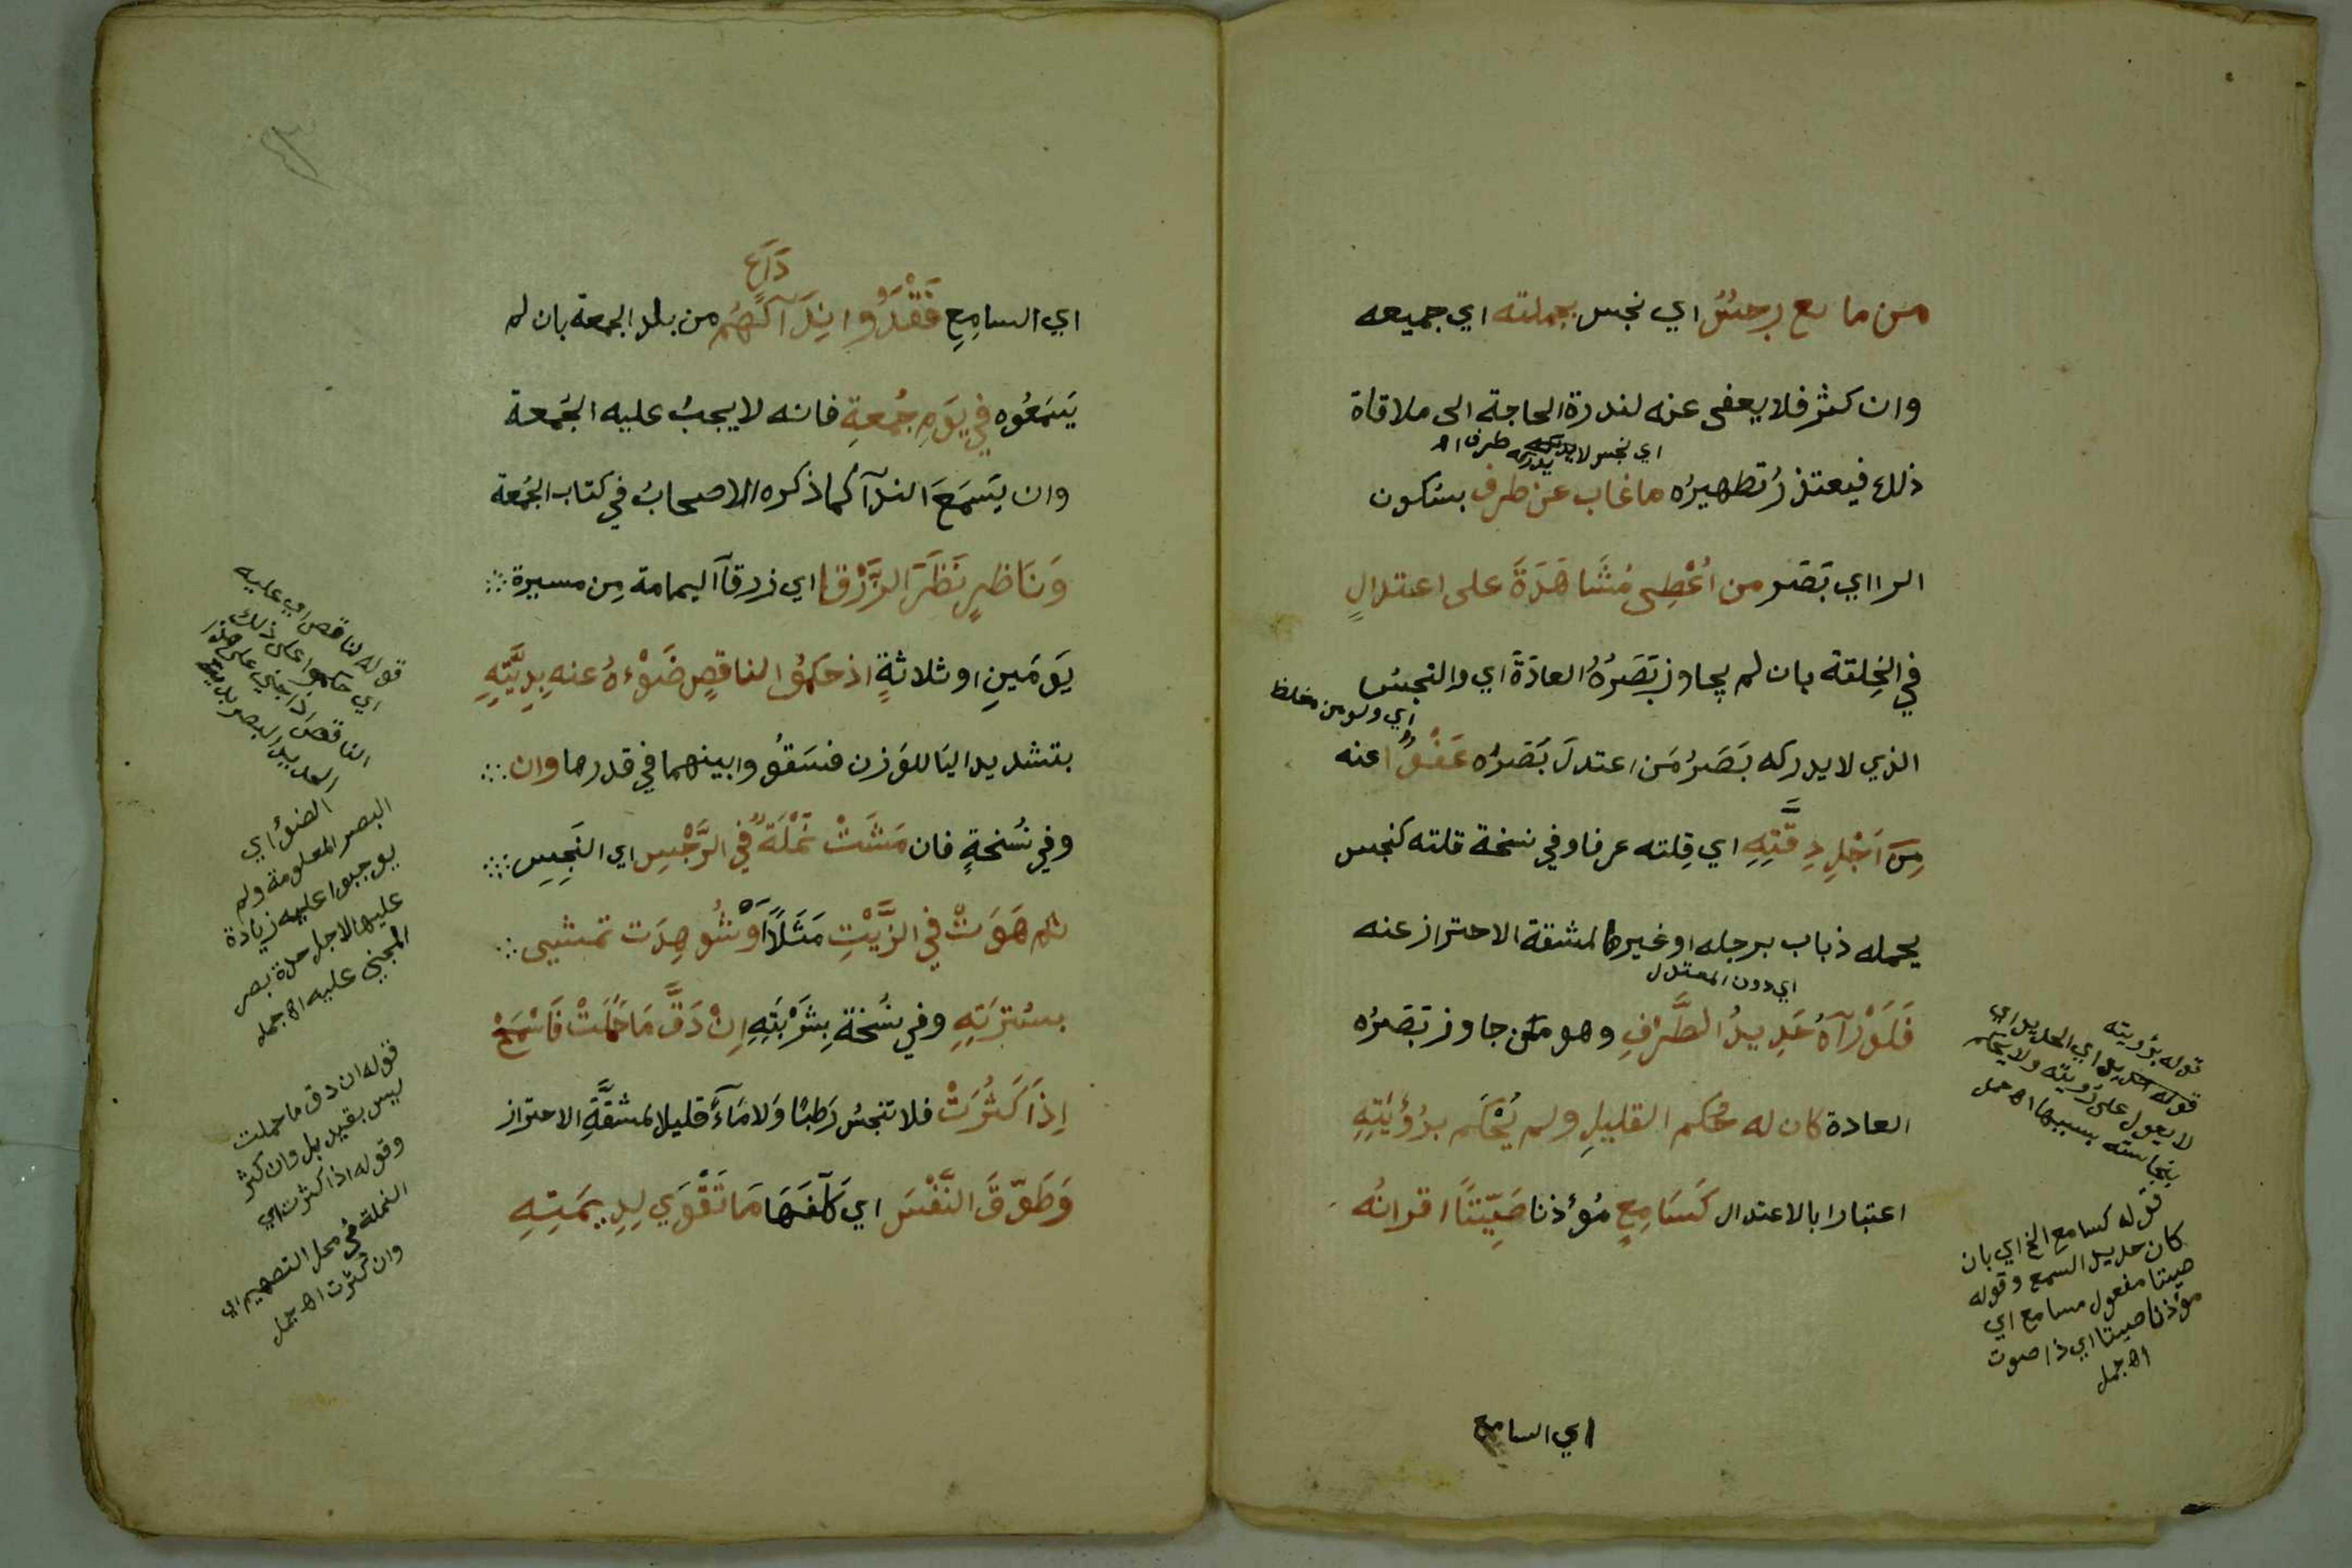 من مايع رجسٌ اي نجس بجملته اي جميعه
وان كثر فلا يعفى عنه لندرة الحاجة الى ملاقاة
اي نجس لا يدركه طرف اه
ذلك فيعتذر تطهيره ما غاب عن طرف بسكون
الرا اي بَصَر من اُعْطِى مُشَاهَدَةً على اعتدالٍ
في الخِلقة بان لم يجاوز بَصَرُهُ العادَةَ اي والنجسُ
اي ولو من مغلظ
الذي لا يدركه بَصَرُ مَن اعتدلَ بَصَرُه عَفْوٌ عنه
مِنَ اَجْلِ دِقَّتِهِ اي قِلته عرفا وفي نسخة قلته كنجس
يحمله ذباب برجله او غيرها لمشقة الاحتراز عنه
اي دون المعتدل
فَلَوْ رَآهُ حَدِيدُ الطَّرْفِ وهو من جاوز بَصَرُه
العادة كان له حُكم القليلِ ولم يُحْكَم برُؤيَتِهِ
اعتبارا بالاعتدال كَسَامِعٍ مُؤذنا صَيِّتًا اقرانُه
قوله برؤيته
قوله حديد اي الحديد اي
لا يعول على رؤيته ولا يحكم
بنجاسته بسببها اه جمل
قوله كسامع الخ اي بان
كان حديد السمع وقوله
صيتا مفعول مسامع اي
مؤذنا صيتا اي ذا صوت
اه جمل
اي السامع
دَاعٍ
اي السامِعِ فَقَدُوا نِدَآكَهُم من بلد الجمعة بان لم
يَسْمَعُوه في يَوْمِ جُمُعةٍ فانه لا يجبُ عليه الجُمعة
وان يَسْمَعَ الندآ كما ذكره الاصحابُ في كتاب الجُمعة
وَنَاظِرٍ نَظَرَ الزَّرْقا اي زرقآ اليمامة مِن مسيرة
يَومَينِ او ثلاثةٍ اذ حَكَمُوا لناقصٍ ضَوْءهُ عنه بِدِيَّتِهِ
بتشديد اليَا للوَزن فسَوّوا بينهما في قدرها وان
وفي نُسخةٍ فان مَشَتْ نَمْلَةٌ في الرَّجْسِ اي النَجِسِ
ثم هَوَتْ في الزَّيْتِ مَثَلًا اَوْ شُوهِدَت تمشى
بسُترَتِهِ وفي نسُخةٍ بِشَرْبَتِهِ اِنْ دَقَّ مَا حَمَلَتْ فَاسْمَحْ
اِذَا كَثُرَتْ فلا تنجسُ رَطبًا وَلا مَآءً قليلا لمشقَّةِ الاحتراز
وَطَوِّقَ النَّفْسَ اي كَلِّفَهَا مَا تَقْوَي لِدِيمَتِهِ
قوله لناقص اي عليه
اي حكموا على ذلك
الناقص اذا جني على هذا
الحديد البصر بدية
الضوْ اي
البصر المعلومة ولم
يوجبوا عليه زيادة
عليها لاجل حدة بصر
المجني عليه اه جمل
قوله ان دق ما حملت
ليس بقيد بل وان كثر
وقوله اذا كثرت اي
النملة في محل التعميم اي
وان كثرت اه جمل